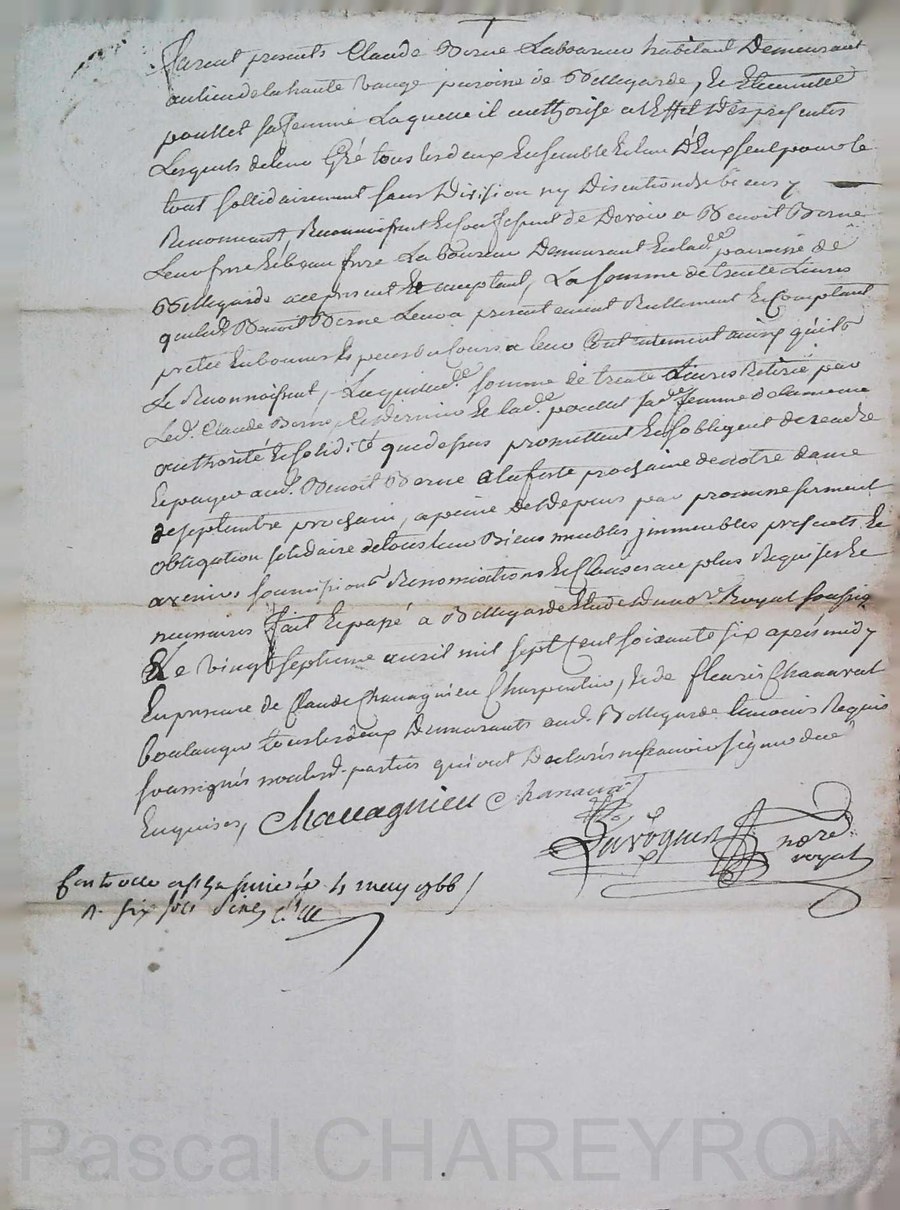 furent presents Claude Berne Laboureur habitant Demeurant
au lieu de la haute Vauge paroisse de Bellegarde, et Etiennette
poullet sa femme Laquelle il authorise a L'Effet des presentes
Lesquels de leur Gré tous les deux Ensemble Et l'un D'Eux seul pour le
tout sollidairement sans Division ny Discution de biens y
Renonceant Reconnoissent et confessent de Devoir a Benoit Berne
Leur frere et beau frere Laboureur Demeurant En lad.e paroisse de
Bellegarde ace present Et acceptant, La somme de trente Livres
que led. Benoit Berne Leur a presentement Reellement Et Comptant
preté En bonnes Especes du Cours a leur Contentement ainsy qu'ils
Le Reconnoissent, Laquelle d.e somme de trente Livres Retirée par
Led. Claude Berne, Ce Dernier Et lad.e poullet sad.e femme de la meme
authorité Et solidité que dessus promettent Et s'obligent de rendre
Et payer aud. Benoit Berne a la feste prochaine de notre dame
de septembre prochain, a peine de Depens par promesse serment
obligation solidaire de tous leurs Biens meubles immeubles presents Et
avenirs soumissions Renonciations Et Clauses au plus Requises Et
necessaires fait Et passé a Bellegarde Etude du no.re Royal soussig.
Le vingt septieme avril mil sept Cent soixante six après midy
En presence de Claude Chavagnieu Charpentier, Et de fleurie Chanavat
boulanger tous les deux Demeurants aud. Bellegarde temoins Requis
soussignés non lesd. parties qui ont Declarés ne scavoir signer de ce
Enquises, Chavagnieu Chanavat
Lavoguer no.re
royal
4 may 1766
R. six sols
Pascal CHAREYRON